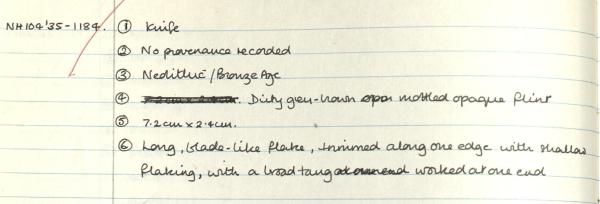 NH104'35-1184. ① Knife
② No provenance recorded
③ Neolithic/Bronze Age
④ Dirty grey-brown mottled opaque flint
⑤ 7.2cm x 2.4cm.
⑥ Long, blade-like flake, trimmed along one edge with shallow
flaking, with a broad tang worked at one end